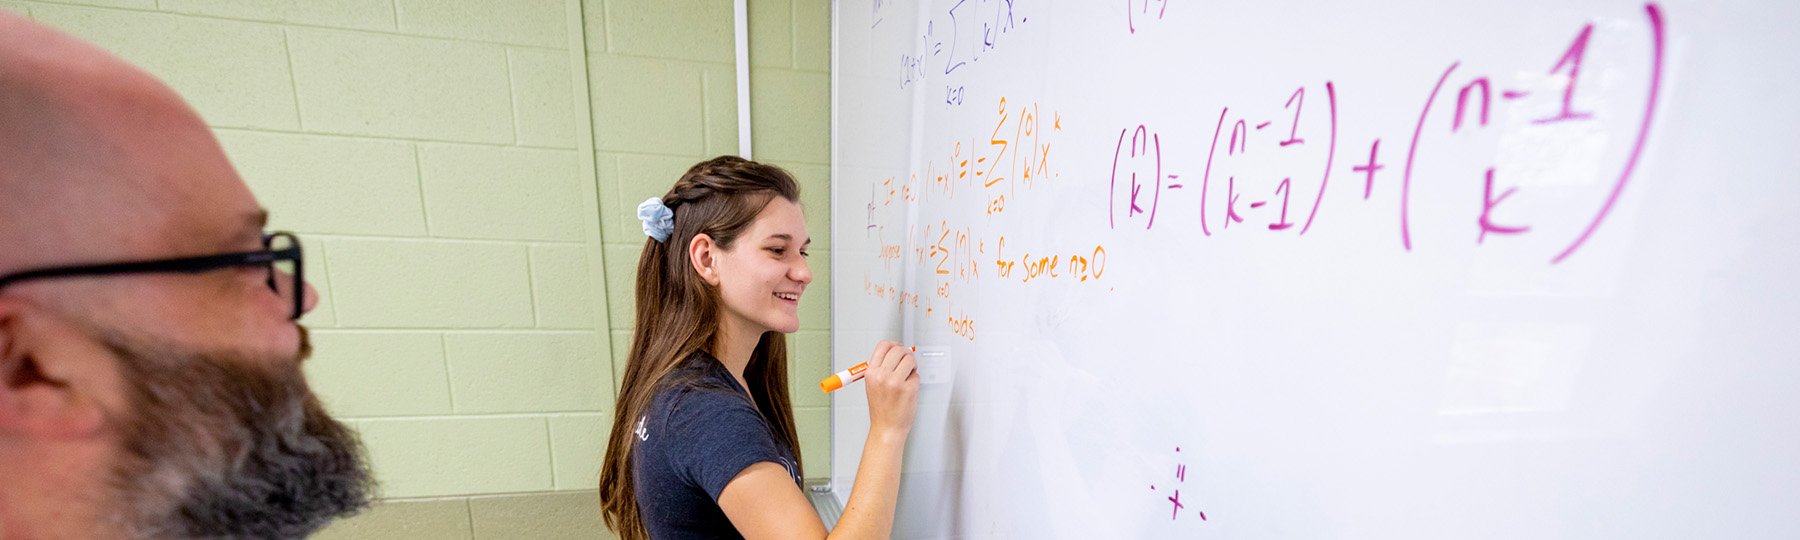 (1+x)ⁿ = ∑ₖ₌₀ ( k) x .
pf If n=0 (1+x)⁰ = 1 = ∑ₖ₌₀⁰ (0 k) xᵏ.
Suppose (1+x)ⁿ = ∑ₖ₌₀ⁿ (n k) xᵏ for some n≥0.
We need to prove it holds
(n k) = (n-1 k-1) + (n-1 k)